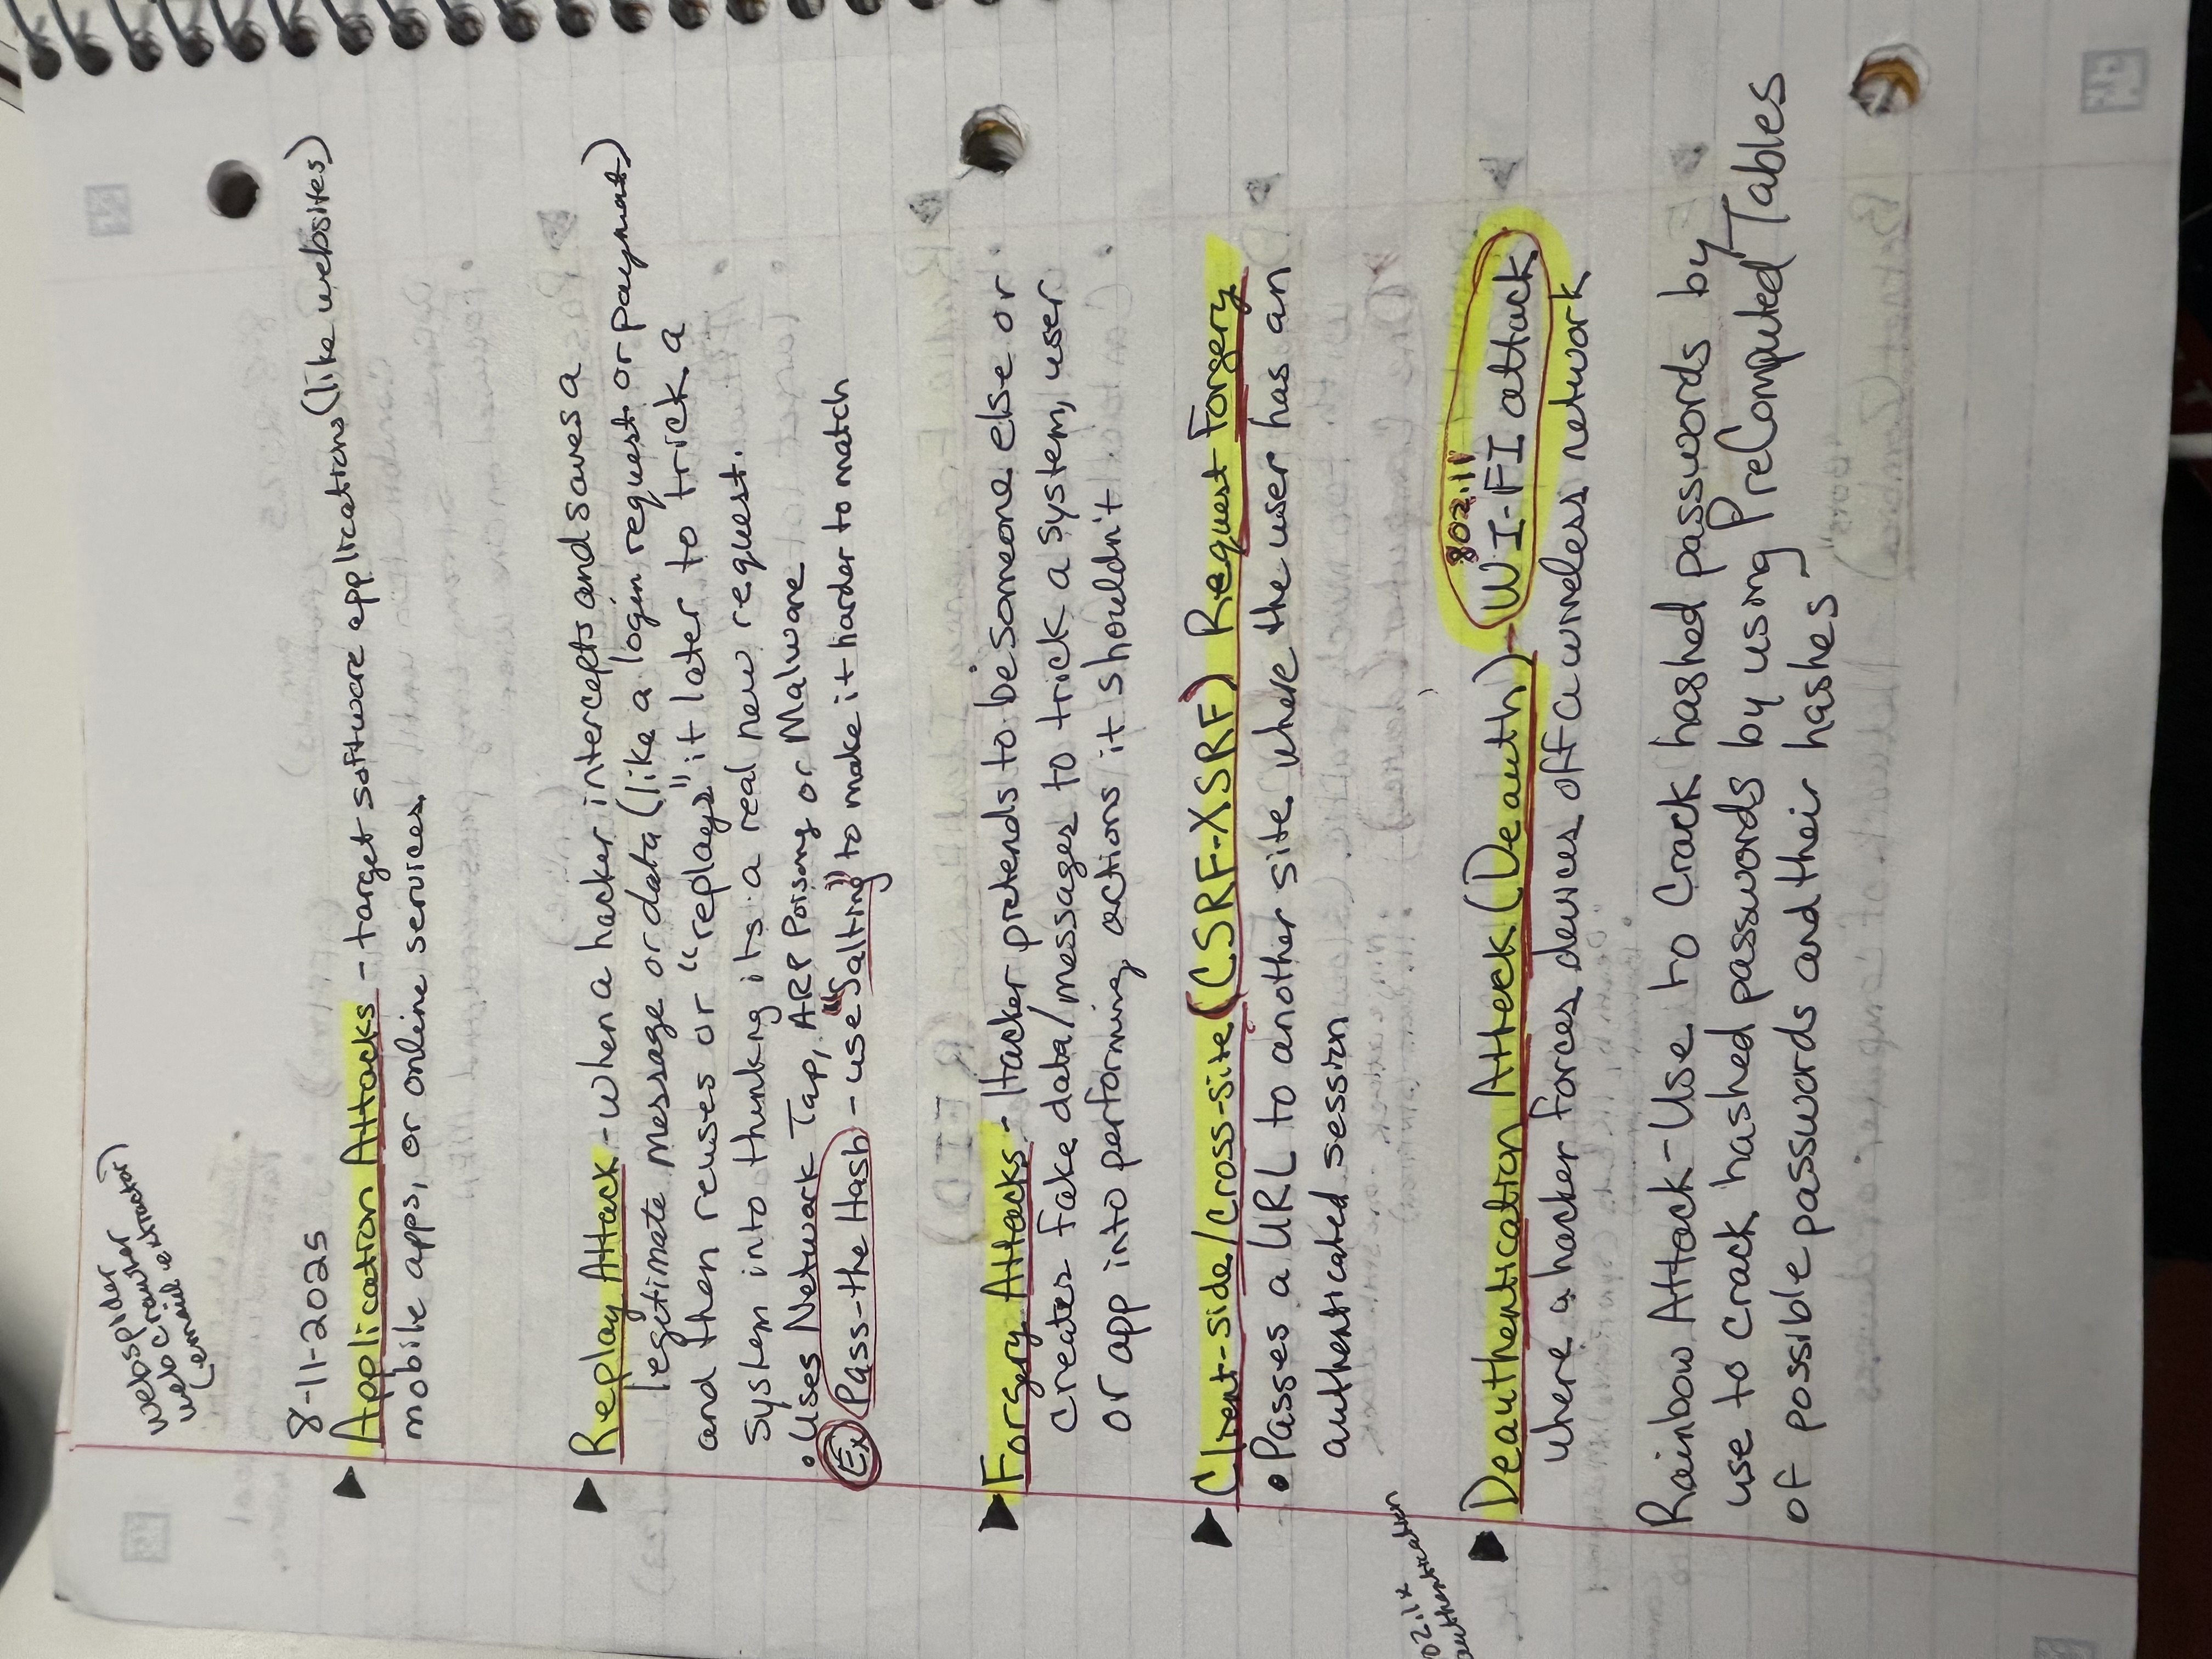 webspider
webcrawler
(email extractor)
8-11-2025
Application Attacks - target software applications (like websites)
mobile apps, or online services
Replay Attack - when a hacker intercepts and saves a
legitimate message or data (like a login request or payment)
and then reuses or "replays" it later to trick a
system into thinking its a real new request.
• Uses Network Tap, ARP Poisoning or Malware
Ex Pass-the Hash - use "Salting" to make it harder to match
Forgery Attacks - Hacker pretends to be someone else or
creates fake data/messages to trick a system, user
or app into performing actions it shouldn't
Client-side/cross-site (CSRF-XSRF) Request Forgery
• Passes a URL to another site where the user has an
authenticated session
02.1x
authentication
802.11
Deauthentication Attack (Deauth) - WI-FI attack
where a hacker forces devices off a wireless network
Rainbow Attack - Use to Crack hashed passwords by
use to crack hashed passwords by using PreComputed Tables
of possible passwords and their hashes